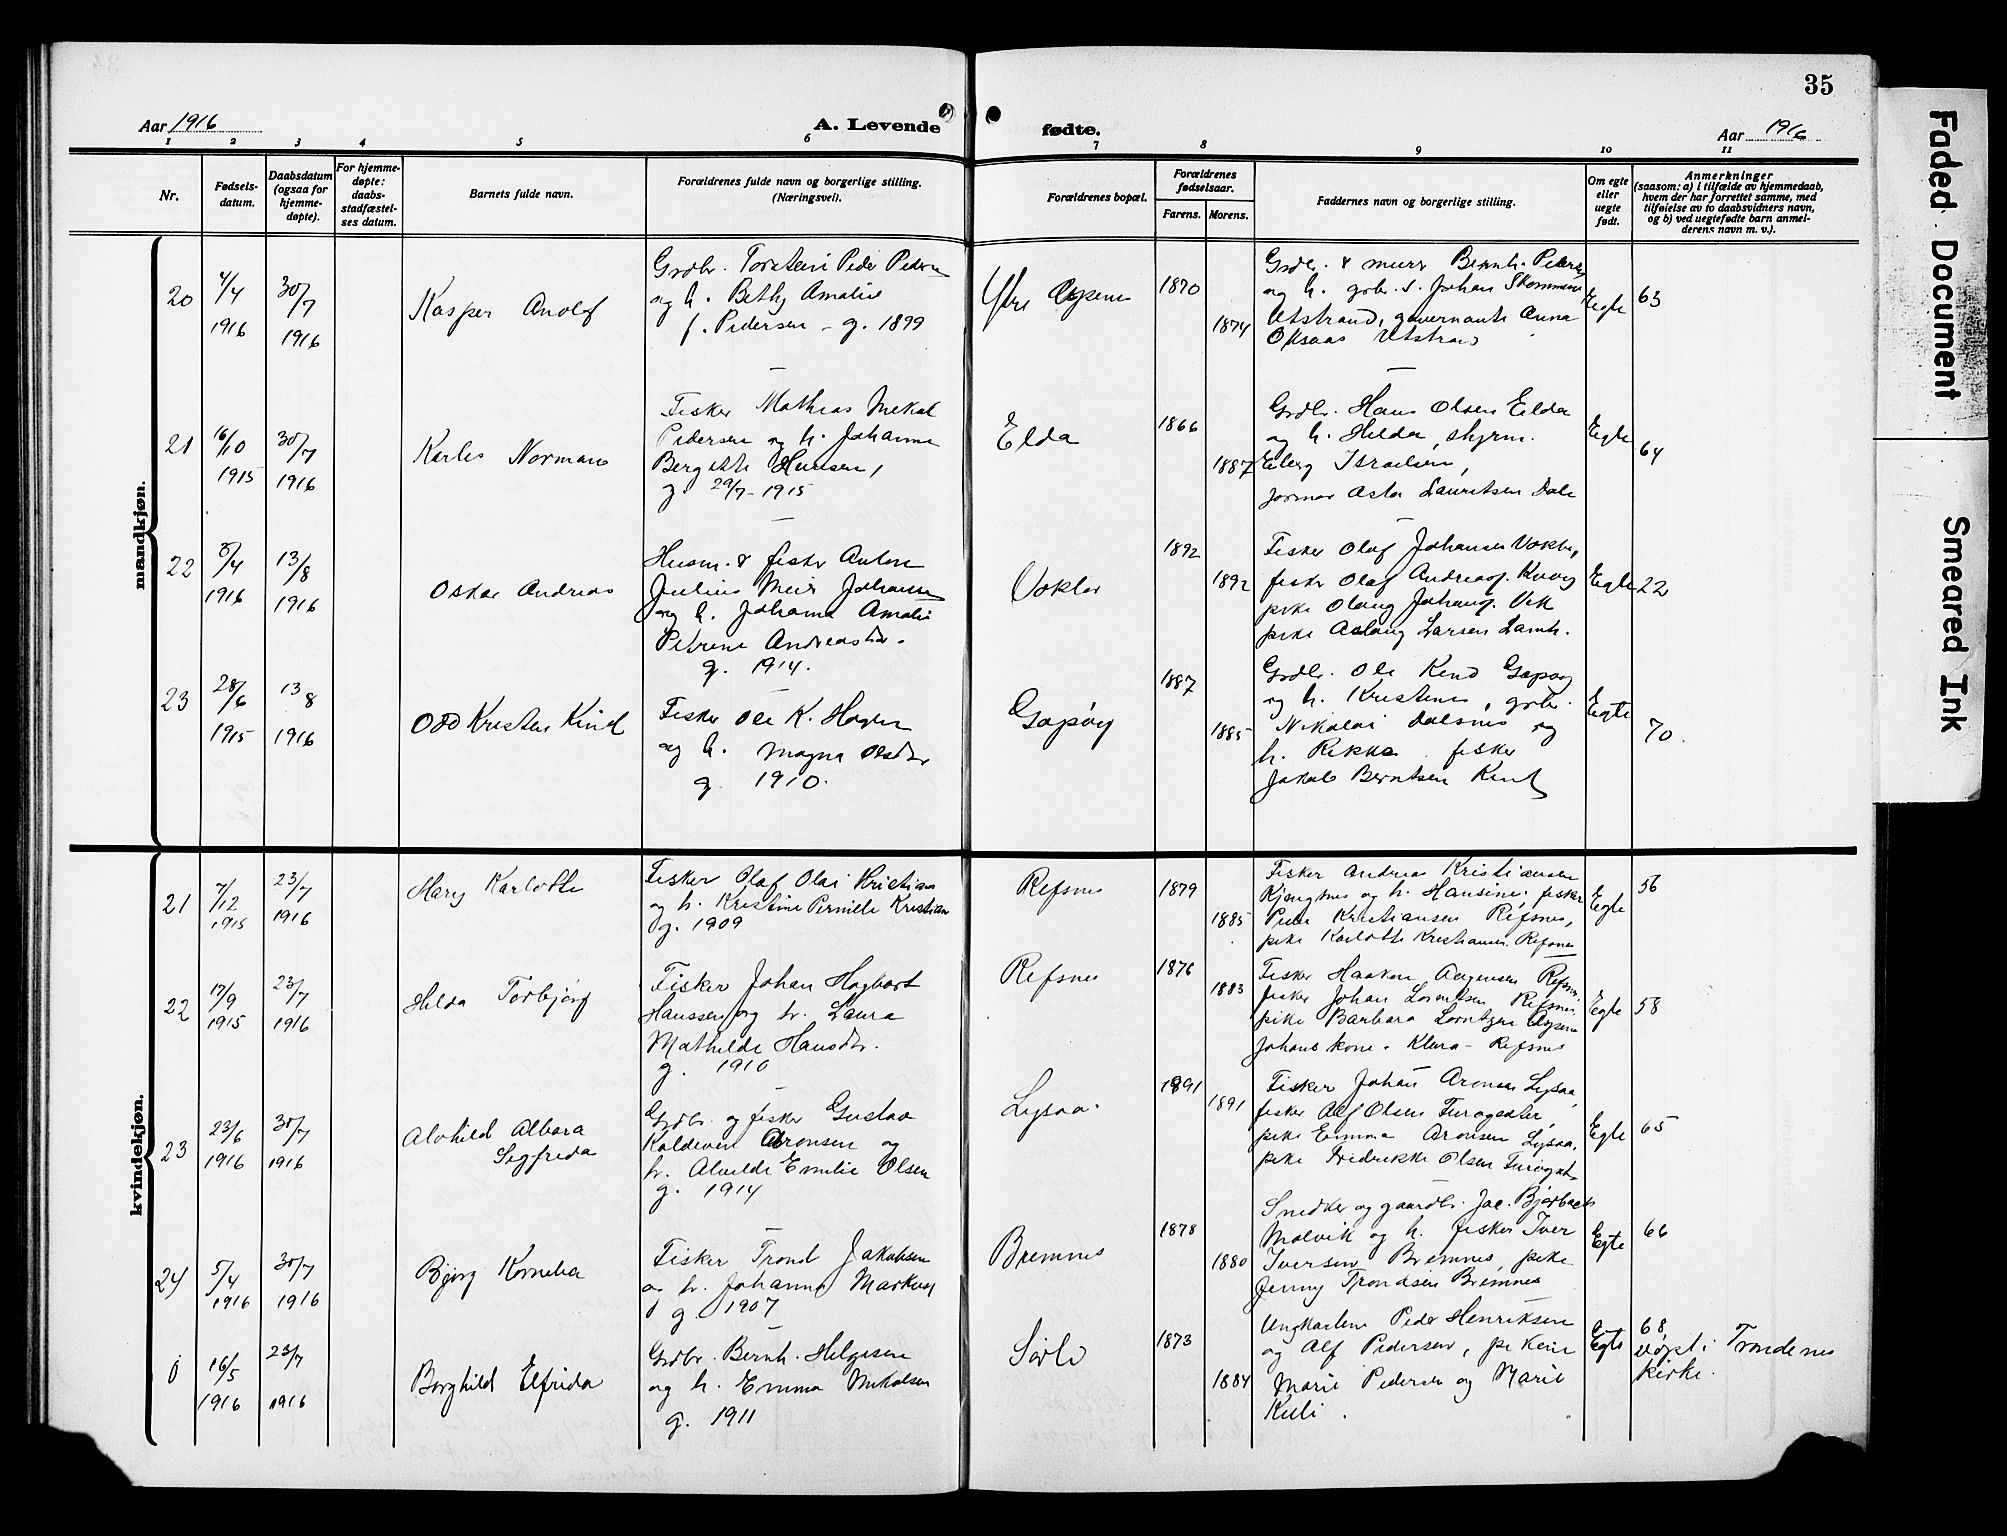 35
Aar 1916
A. Levende fødte.
Aar 1916
1 2 3 4 5 6 7 8 9 10 11
Nr.
Fødsels-
datum.
Daabsdatum
(ogsaa for
hjemme-
døpte).
For hjemme-
døpte:
daabs-
stadfæstel-
ses datum.
Barnets fulde navn.
Forældrenes fulde navn og borgerlige stilling.
(Næringsvei).
Forældrenes bopæl.
Forældrenes
fødselsaar.
Farens. Morens.
Faddernes navn og borgerlige stilling.
Om egte
eller
uegte
født.
Anmerkninger
(saasom: a) i tilfælde av hjemmedaab,
hvem der har forrettet samme, med
tilføielse av to daabsvidners navn,
og b) ved uegtefødte barn anmel-
derens navn m. v.).
mandkjøn.
20
4/4
1916
30/7
1916
Kasper Anolf
Grdbr. Torstein Peder Pedersen
og h. Bethy Amalie
f. Pedersen - g. 1899
1870
1874
Grdbr. & murer Bernh. Peders
og h. grbr. s. Johan
Utstrand, guvernante Anna
Oksaas Utstrand
Egte
63
21
16/10
1915
30/7
1916
Karles Norman
Fisker Mathias Mekal
Pedersen og h. Johanna
Hansen,
g. 29/7-1915
Elda
1866
1887
Grdbr. Hans Olsen Elda
og h. Helda,
Israelsen,
Asta Lauritsen Dale
Egte
64
22
5/4
1916
13/8
1916
Oskar Andreas
Husm. & fisker Anton
Julius Meier Johansen
og h. Johanna Amalie
Petrine Andreasdtr.
g. 1914.
1892
1892
Fisker Olaf Johansen
fisker Olaf Andreas.
pike Olaug Johans. Vik
pike Aslaug Larsen
Egte
22
23
28/6
1915
13/8
1916
Odd Kristen Kind
Fisker Ole K. Hagen
og h. Magna Olsdtr
g. 1910.
Gapøy
1887
1885
Grdbr. Ole Kind Gapøy
og h. Kristine, grbr.
Nikolai Dalsnes og
h. Rikka fisker
Jakob Berntsen Kind
Egte
70.
kvindekjøn.
21
7/12
1915
23/7
1916
Mary Karlotte
Fisker Olaf Olai Kristian
og h. Kristine Pernille Kristian
g. 1909
Refsnes
1879
1885
Fisker Andreas Kristiansen
og h. Hansine, fisker
Peder Kristiansen Refsnes,
pike Karlotte Kristiansen Refsnes
Egte
56
22
17/9
1915
23/7
1916
Helda Torbjørg
Fisker Johan Hagbart
Hanssen og h. Laura
Mathilde Hansdtr.
g. 1910
Refsnes
1876
1883
Fisker Haakon Refsn.
fisker Johan Lorentsen Refsnes
pike Barbara Lorntzen
Johans kone. Klara - Refsnes
Egte
58
23
23/6
1916
30/7
1916
Alvhild Albara
Sigfrida
Grdbr. og fisker Gustav
Kaldevin Aronsen og
h. Alvilde Emelie Olsen
g. 1914
Lysaa.
1891
1891
Fisker Johan Aronsen Lysaa,
fisker Alf Olsen
pike Emma Aronsen Lysaa,
pike Fredrikke Olsen
Egte
65
24
5/4
1916
30/7
1916
Bjørg Kornelia
Fisker Trond Jakobsen
og h. Johanna Markus
g. 1907
Bremnes
1878
1880
Snedker og gaardbr. Jac. Bjørbæk
Molvik og h. fisker Iver
Iversen Bremnes, pike
Jenny Trondsen Bremnes
Egte
66
0
16/5
1916
23/7
1916
Borghild Elfrida
Grdbr. Bernh. Helgesen
og h. Emma Mikalsen
g. 1911
Sørli
1873
1884
Ungkarlene Peder Henriksen
og Alf Pedersen, pikene
Marie Pedersen og Marie
Egte
68
døpt i Trondenes
kirke.
Faded Document
Smeared Ink